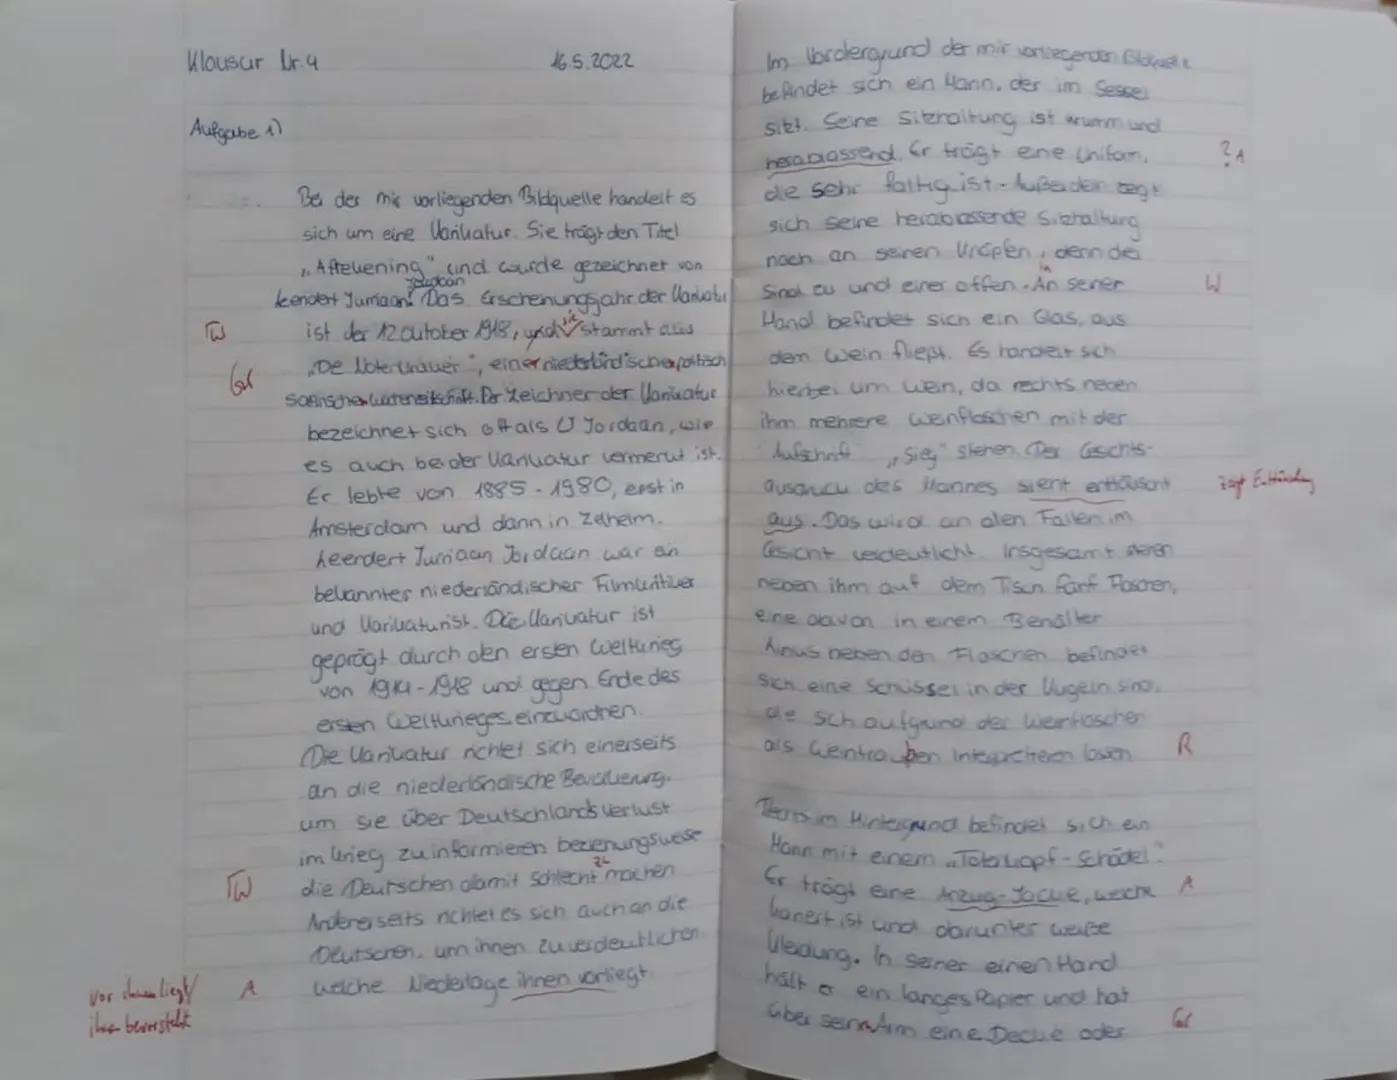 Klausur Nr. 4
16.5.2022
Aufgabe 1)
Bei der mir vorliegenden Bildquelle handelt es
sich um eine Karikatur. Sie trägt den Titel
„Aftekening" und wurde gezeichnet von
Jordaan
Leendert Jurriaan. Das Erscheinungsjahr der Karikatur
TW
ist der 12 Oktober 1918, und sie stammt aus
Gr
„De Notenkraker", einer niederländischen politisch
satirischen Wochenzeitschrift. Der Zeichner der Karikatur
bezeichnet sich oft als LJ Jordaan, wie
es auch bei der Karikatur vermerkt ist.
Er lebte von 1885-1980, erst in
Amsterdam und dann in Zelhem.
Leendert Jurriaan Jordaan war ein
bekannter niederländischer Filmkritiker
und Karikaturist. Die Karikatur ist
geprägt durch den ersten Weltkrieg
von 1914-1918 und gegen Ende des
ersten Weltkrieges einzuordnen.
Die Karikatur richtet sich einerseits
an die niederländische Bevölkerung,
um sie über Deutschlands Verlust
im Krieg zu informieren beziehungsweise
TW
die Deutschen damit schlecht zu machen
Andererseits richtet es sich auch an die
Deutschen, um ihnen zu verdeutlichen
welche Niederlage ihnen vorliegt.
A
vor ihnen liegt/
ihnen bevorsteht
Im Vordergrund der mir vorliegenden Bildquelle
befindet sich ein Mann, der im Sessel
sitzt. Seine Sitzhaltung ist krumm und
herablassend. Er trägt eine Uniform,
? A
die sehr faltig ist. Außerdem zeigt
sich seine herablassende Sitzhaltung
noch an seinen Knöpfen, denn die
sind zu und einer offen. In seiner
W
Hand befindet sich ein Glas, aus
dem Wein fließt. Es handelt sich
hierbei um Wein, da rechts neben
ihm mehrere Weinflaschen mit der
Aufschrift „Sieg" stehen. Der Gesichts-
ausdruck des Mannes sieht enttäuscht
zeigt Enttäuschung
aus. Das wird an den Falten im
Gesicht verdeutlicht. Insgesamt stehen
neben ihm auf dem Tisch fünf Flaschen,
eine davon in einem Behälter
Links neben den Flaschen befindet
sich eine Schüssel in der Kugeln sind,
die sich aufgrund der Weinflaschen
als Weintrauben interpretieren lassen
R
im Hintergrund befindet sich ein
Mann mit einem „Totenkopf-Schädel".
Er trägt eine Anzug-Jacke, welche
A
kariert ist und darunter weiße
Kleidung. In seiner einen Hand
hält er ein langes Papier und hat
über seinem Arm eine Decke oder
Gr